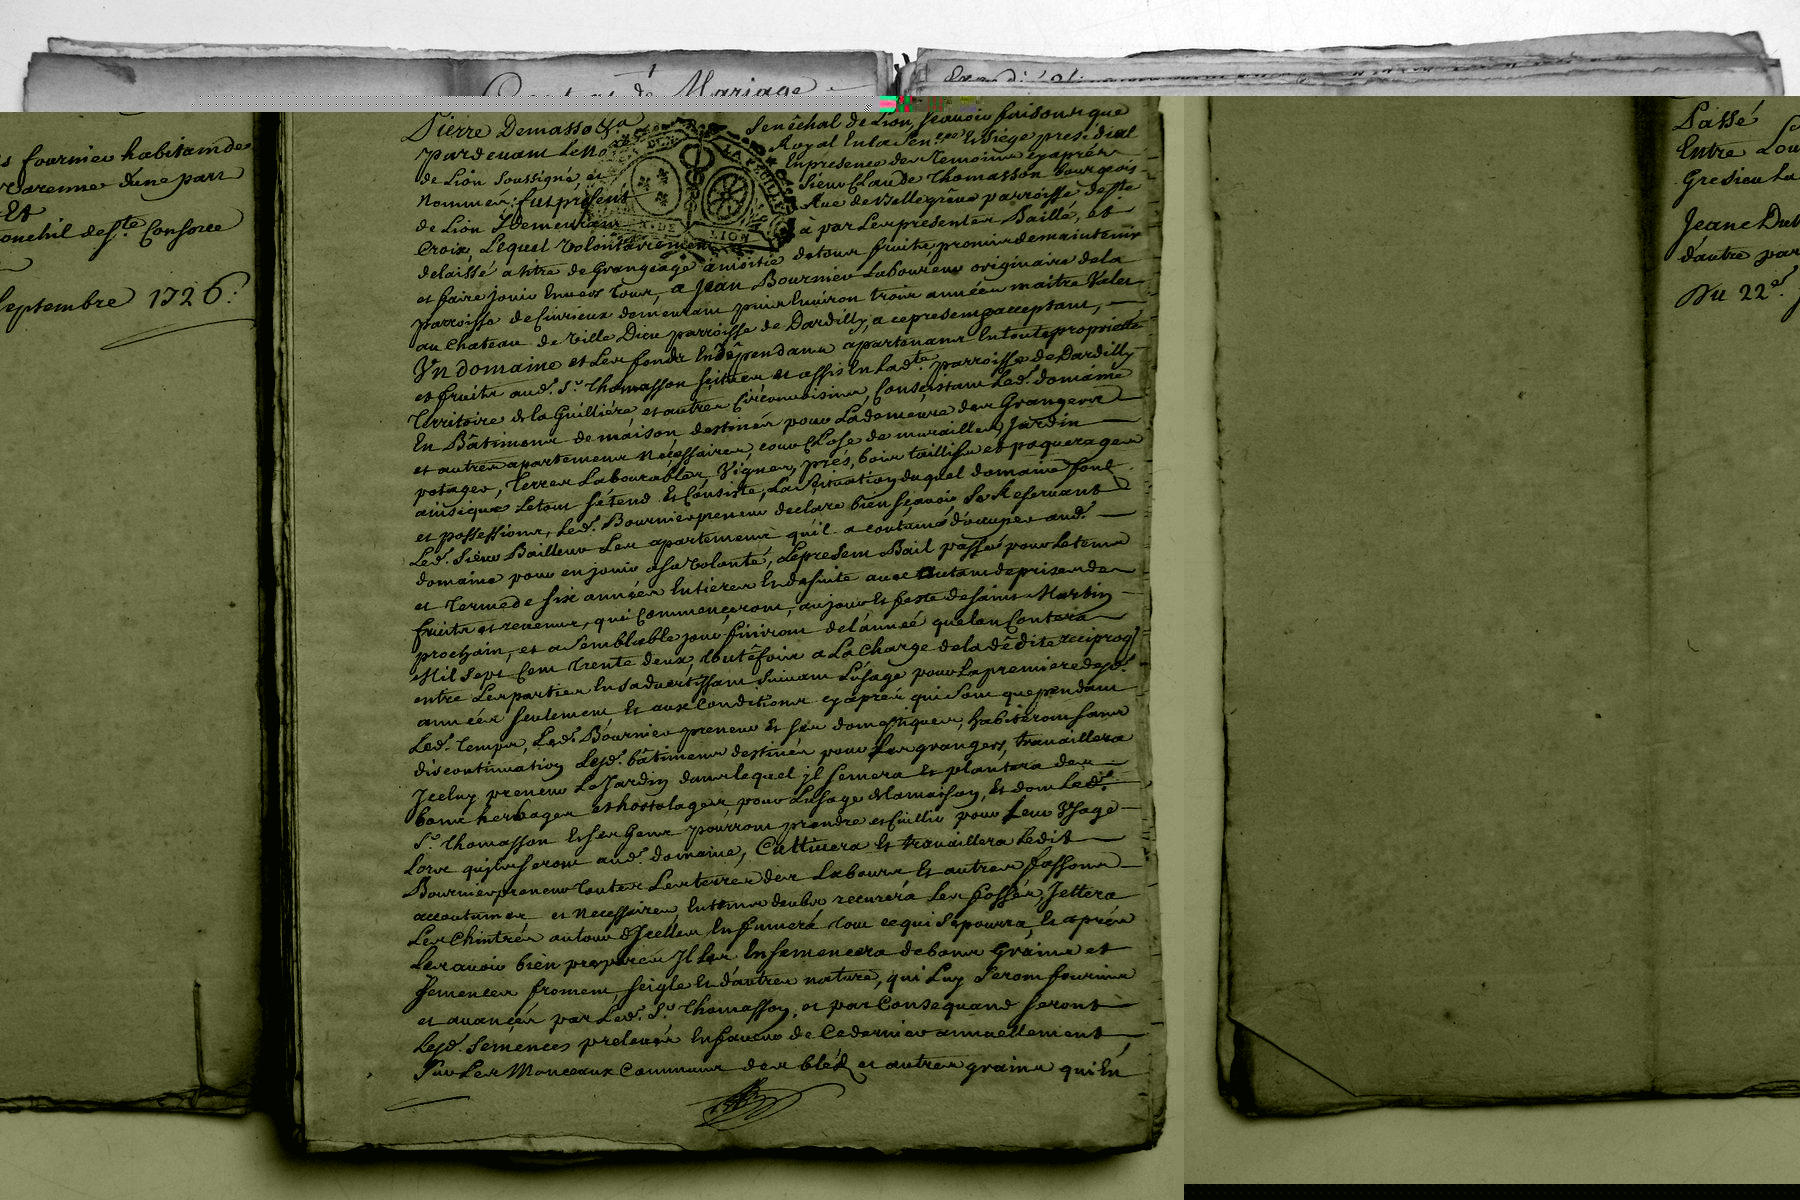 Contrat de Mariage
s fournieu habitam de
varenne dune part
Et
onchil de s.te Consorce
Septembre 1726.
Pierre Demasso
Senéchal de Lion, scavoir faisons que
pardevant le No
Royal En la Sen.ée Et Siège presidial
de Lion soussigné, et
En presence des Temoins cy aprés
Nommez: fut présent
Sieur Claude Thomasson Bourgeois
de Lion Y Demeurant
Rue de Bellegrêve parroisse de s.te
Croix, Lequel Volontairement
à par Les présentes Baillé, et
delaissé a titre de Grangeage à moitié de tous fruits promis de maintenir
et faire jouir Envers Tous, a Jean Bournieu Laboureur originaire de la
parroisse de Civrieux demeurant puis Environ trois années maitre Valet
au Chateau de Ville Dieu parroisse de Dardilly, a ce present et acceptant,
Un domaine et Les fonds En dépendants apartenant En toute proprieté
et fruits aud. S.r Thomasson scituez et assis En lad.te parroisse de Dardilly
Territoire de la Guilliére et autres Circonvoisins Consistant Led. domaine
En Bâtiments de maison, destinés pour La demeure des Grangers
et autres apartements Nécessaires, cour Close de murailles, Jardin
potager, Terres Labourables, Vignes, prés, bois taillis et paquerages
ainsi que Le tout s'étend Et Consiste, La scituation duquel domaine fonds
et possessions, Led. Bournieu preneur declare bien sçavoir Se Reservant
Led. Sieur Bailleur Les apartements qu'il a coutume d'occuper aud.
domaine pour en jouir a sa Volonté, Le present Bail passé pour Le tems
et Terme de six années Entieres Et de suite avec autant de prises des
fruits et revenus, qui Commenceront, au jour Et feste de saint Martin
prochain, et a Semblable jour finiront de l'année que l'on Contera
Mil sept Cent Trente deux, toutefois a La Charge de la dédite reciproq.
entre Les parties En s'advertissant suivant L'usage pour La premiere desd.
années seulement Et aux Conditions cy aprés qui sont que pendant
Led. Temps, Led. Bournieu preneur Et ses domestiques, habiteront sans
discontinuation Lesd. bâtiments destinés pour Les grangers, travaillera
Iceluy preneur Le Jardin dans lequel jl semera Et plantera des
bons herbages et hortolages pour L'usage de la maison, Et dont Led.
S.r Thomasson Et ses Gens pourront prendre et Cuillir pour Leur Usage
Lors qu'ils seront aud. domaine, Cultivera Et travaillera Ledit
Bournieu preneur Toutes Les terres des Labours Et autres façons
accoutumées et Necessaires, En tems deubs recurera Les fossés, Jettera
Les Chintrés autour d'Icelles En fumera Tout ce qui se pourra, Et aprés
Les avoir bien preparées Il Les Ensemencera de bons Grains et
semences froment, seigle Et d'autres nature, qui Luy Seront fournies
et avancées par Led. S.r Thomasson, et par Consequand seront
Lesd. semences prelevées En faveur de Ce dernier annuellement,
Sur Les Monceaux Communs des bléz et autres grains qui En
Passé
Entre Lou
Gresieu La
Jeane Dub
d'autre par
Du 22.e